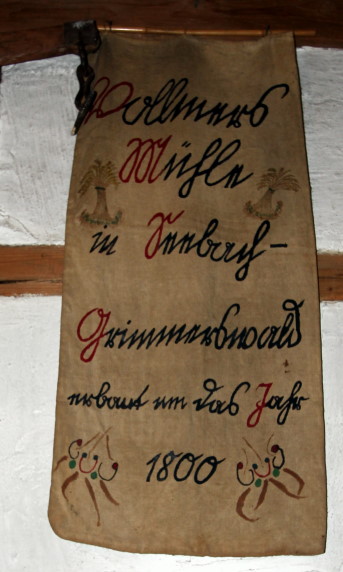 Vollmers
Mühle
in Seebach-
Grimmerswald
erbaut um das Jahr
1800